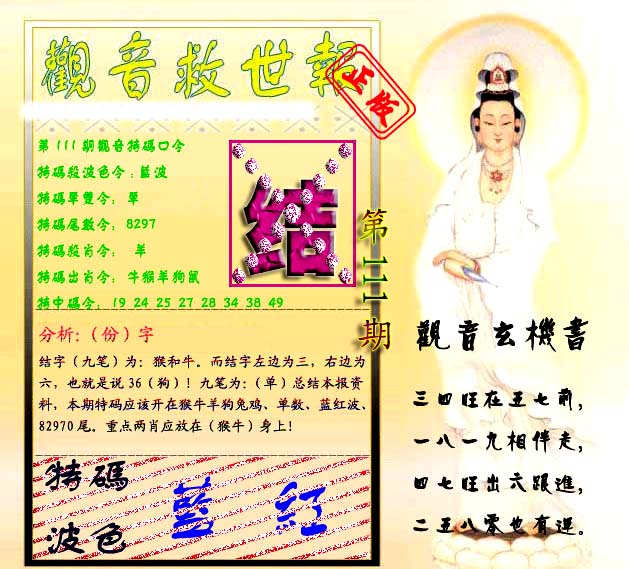 觀音救世報
正版
第111期觀音特碼口令
特碼殺波色令:藍波
特碼單雙令: 單
特碼尾數令: 8297
特碼殺肖令: 羊
特碼出肖令: 牛猴羊狗鼠
特中碼令: 19 24 25 27 28 34 38 49
结
第一一一期
分析:（份）字
结字（九笔）为：猴和牛。而结字左边为三，右边为
六，也就是说36（狗）！九笔为：（单）总结本报资
料，本期特码应该开在猴牛羊狗兔鸡、单数、蓝红波、
82970尾。重点两肖应放在（猴牛）身上！
特碼
波色
藍 紅
觀音玄機書
三四旺在五七前，
一八一九相伴走，
四七旺出六跟進，
二五八零也有運。